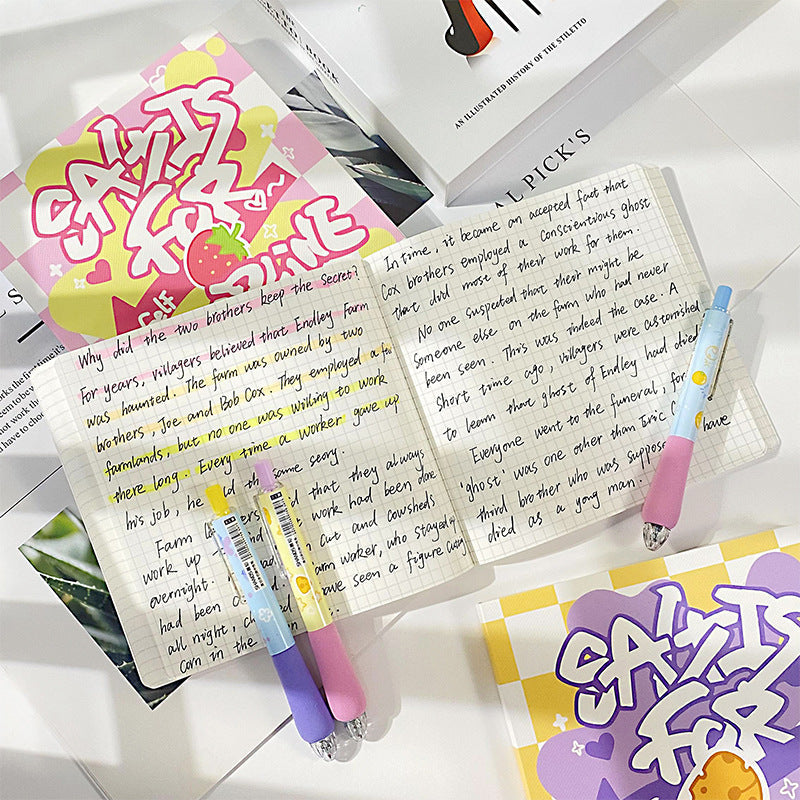 Why did the two brothers keep the secret?
For years, villagers believed that Endley Farm
was haunted. The farm was owned by two
brothers, Joe and Bob Cox. They employed a few
farmlands, but no one was willing to work
there long. Every time a worker gave up
his job, he the same seory.
Farm that they always
work up work had been done
overnight. cut and cowsheds
had been worker, who stayed
all night, have seen a figure Cutting
Corn in the
In time, it became an accepted fact that
Cox brothers employed a Conscientious ghost
that did most of their work for them.
No one suspected that their might be
someone else on the farm who had never
been seen. This was indeed the case. A
Short time ago, villagers were astonished
to learn that ghost of Endley had died
Everyone went to the funeral, for
'ghost' was one other than Eric have
third brother who was suppos
died as a yong man.
SALUTS
FOR
Self
SALUTS
FOR
AN ILLUSTRATED HISTORY OF THE STILETTO
AL PICK'S